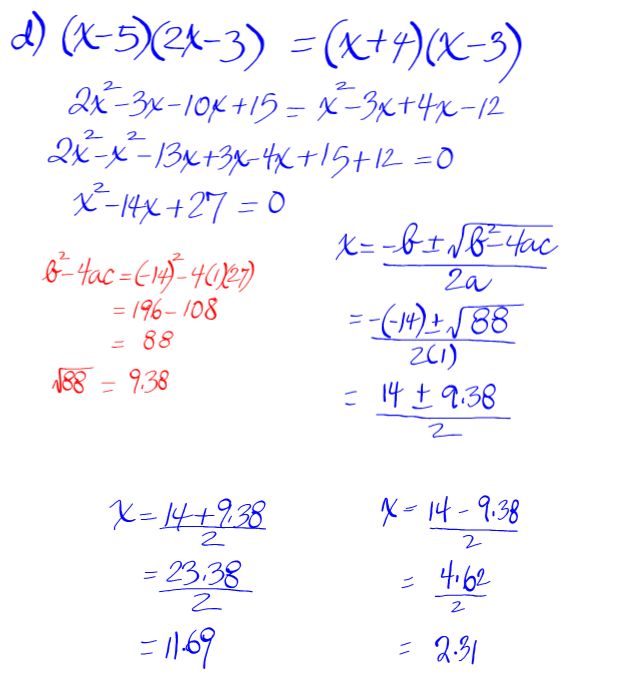 d) (x-5)(2x-3) = (x+4)(x-3)
2x²-3x-10x+15 = x²-3x+4x-12
2x²-x²-13x+3x-4x+15+12 = 0
x²-14x+27 = 0
b²-4ac = (-14)²-4(1)(27)
= 196-108
= 88
√88 = 9.38
x = -b±√b²-4ac
2a
= -(-14)±√88
2(1)
= 14 ± 9.38
2
x = 14+9.38
2
= 23.38
2
= 11.69
x = 14-9.38
2
= 4.62
2
= 2.31